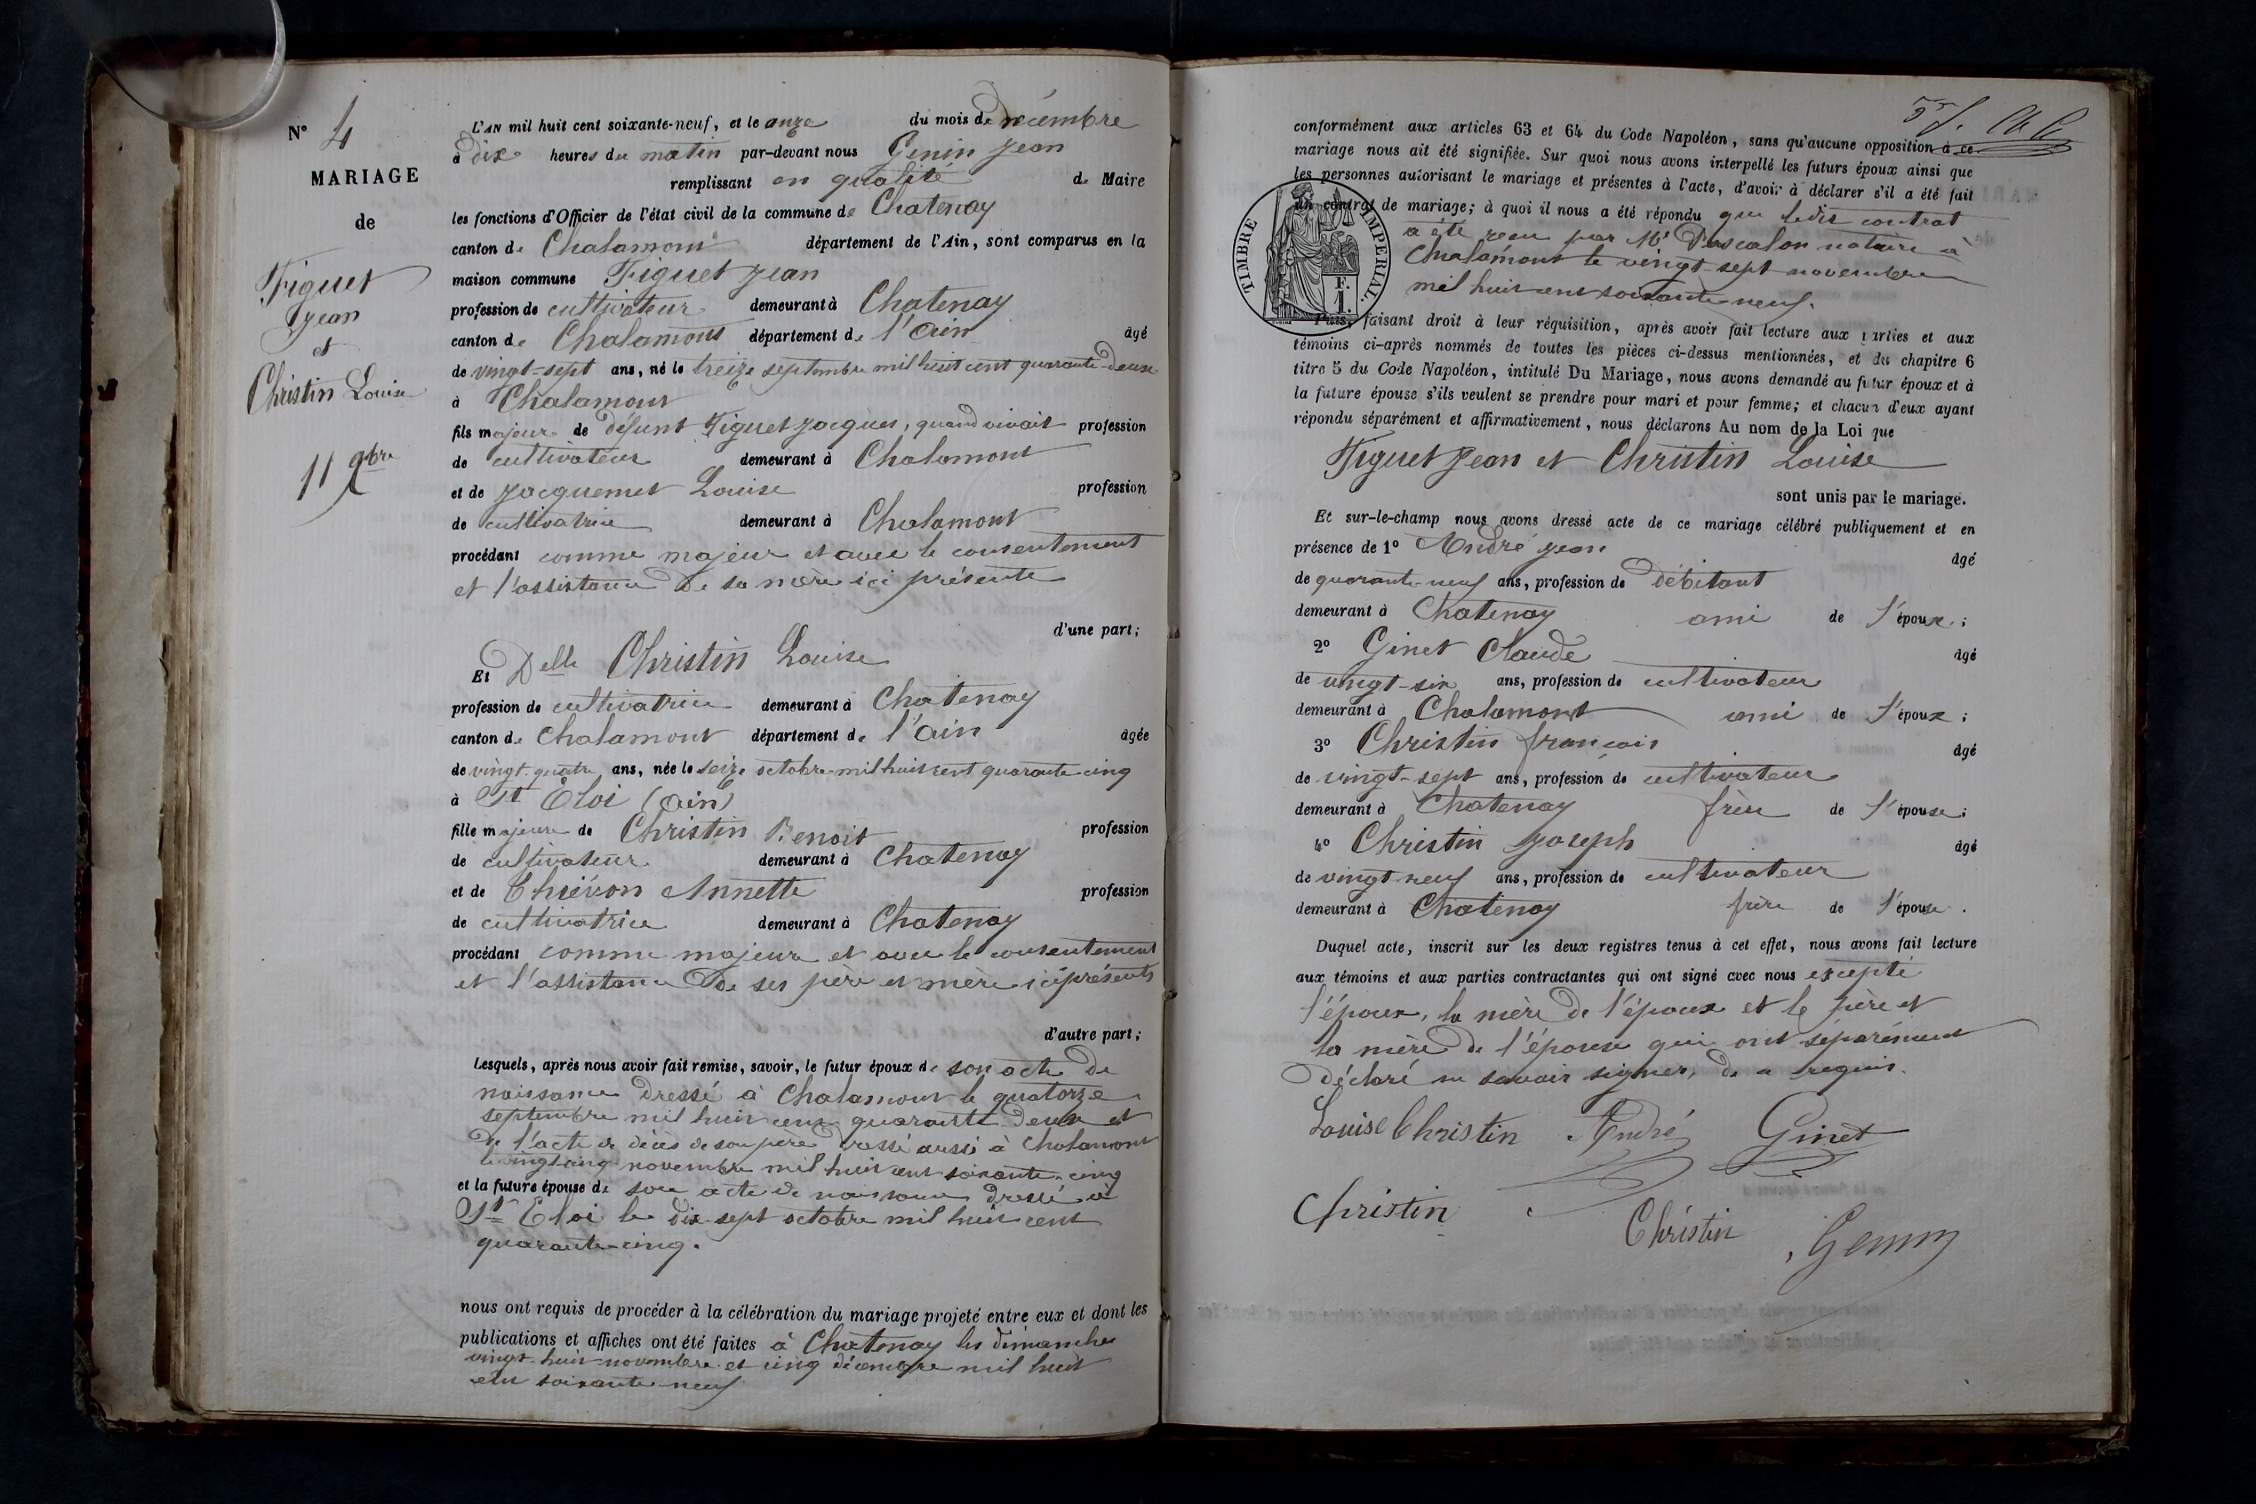 N° 4
MARIAGE
de
Figuet
Jean
et
Christin Louise
11 Xbre
L'AN mil huit cent soixante-neuf, et le onze du mois de décembre
à dix heures du matin par-devant nous Genin Jean
remplissant en qualité de Maire
les fonctions d'Officier de l'état civil de la commune de Chatenay
canton de Chalamont département de l'Ain, sont comparus en la
maison commune Figuet Jean
profession de cultivateur demeurant à Chatenay
canton de Chalamont département de l'Ain âgé
de vingt-sept ans, né le treize septembre mil huit cent quarante-deux
à Chalamont
fils majeur de défunt Figuet Jacques, quand vivait profession
de cultivateur demeurant à Chalamont
et de Jacquemet Louise profession
de cultivatrice demeurant à Chalamont
procédant comme majeur et avec le consentement
et l'assistance de sa mère ici présente
d'une part;
Et Delle Christin Louise
profession de cultivatrice demeurant à Chatenay
canton de Chalamont département de l'Ain âgée
de vingt-quatre ans, née le seize octobre mil huit cent quarante cinq
à St Eloi (Ain)
fille majeure de Christin Benoit profession
de cultivateur demeurant à Chatenay
et de Thiévon Annette profession
de cultivatrice demeurant à Chatenay
procédant comme majeure et avec le consentement
et l'assistance de ses père et mère ici présents
d'autre part;
Lesquels, après nous avoir fait remise, savoir, le futur époux de son acte de
naissance dressé à Chalamont le quatorze
septembre mil huit cent quarante deux et
de l'acte de décès de son père dressé aussi à Chalamont
le vingt cinq novembre mil huit cent soixante-cinq
et la future épouse de son acte de naissance dressé à
St Eloi le dix-sept octobre mil huit cent
quarante-cinq.
nous ont requis de procéder à la célébration du mariage projeté entre eux et dont les
publications et affiches ont été faites à Chatenay les dimanches
vingt-huit novembre et cinq décembre mil huit
cent soixante-neuf
conformément aux articles 63 et 64 du Code Napoléon, sans qu'aucune opposition à ce
mariage nous ait été signifiée. Sur quoi nous avons interpellé les futurs époux ainsi que
les personnes autorisant le mariage et présentes à l'acte, d'avoir à déclarer s'il a été fait
un contrat de mariage; à quoi il nous a été répondu que ledit contrat
a été reçu par Me Pascalon notaire à
Chalamont le vingt-sept novembre
mil huit cent soixante-neuf.
TIMBRE IMPERIAL.
F.
1.
Puis, faisant droit à leur réquisition, après avoir fait lecture aux parties et aux
témoins ci-après nommés de toutes les pièces ci-dessus mentionnées, et du chapitre 6
titre 5 du Code Napoléon, intitulé Du Mariage, nous avons demandé au futur époux et à
la future épouse s'ils veulent se prendre pour mari et pour femme; et chacun d'eux ayant
répondu séparément et affirmativement, nous déclarons Au nom de la Loi que
Figuet Jean et Christin Louise
sont unis par le mariage.
Et sur-le-champ nous avons dressé acte de ce mariage célébré publiquement et en
présence de 1° André Jean âgé
de quarante-neuf ans, profession de débitant
demeurant à Chatenay ami de l'époux;
2° Ginet Claude âgé
de vingt-six ans, profession de cultivateur
demeurant à Chalamont ami de l'époux;
3° Christin françois âgé
de vingt-sept ans, profession de cultivateur
demeurant à Chatenay frère de l'épouse;
4° Christin Joseph âgé
de vingt-neuf ans, profession de cultivateur
demeurant à Chatenay frère de l'épouse.
Duquel acte, inscrit sur les deux registres tenus à cet effet, nous avons fait lecture
aux témoins et aux parties contractantes qui ont signé avec nous excepté
l'époux, la mère de l'époux et le père et
la mère de l'épouse qui ont séparément
déclaré ne savoir signer, de ce requis.
Louise Christin André Ginet
Christin
Christin Genin